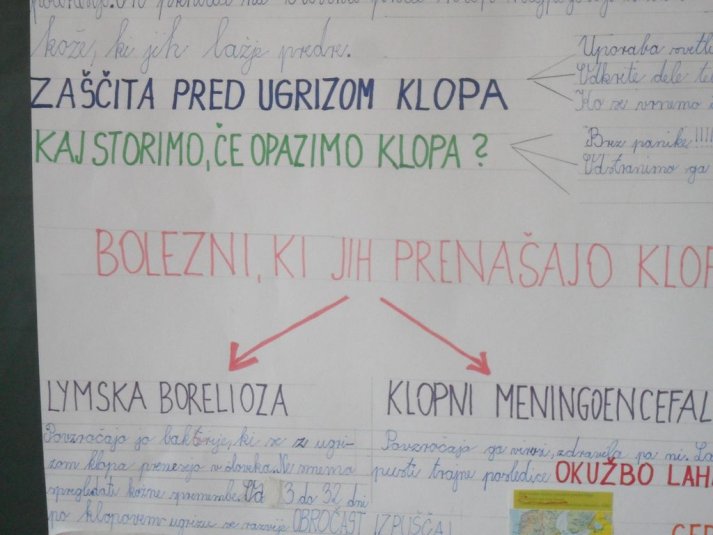 kože, ki jih lažje predre.
ZAŠČITA PRED UGRIZOM KLOPA
Uporaba svetl
Odkrite dele te
Ko se vrnemo
KAJ STORIMO, ČE OPAZIMO KLOPA?
Brez panike!!!!
Odstranimo ga
BOLEZNI, KI JIH PRENAŠAJO KLOP
LYMSKA BORELIOZA
KLOPNI MENINGOENCEFAL
Povzročajo jo bakterije, ki se z ugri-
zom klopa prenesejo v človeka. Ne smemo
spregledati kožne spremembe. Od 3 do 32 dni
po klopovem ugrizu se razvije OBROČAST IZPUŠČAJ
Povzročajo ga virusi, zdravila pa ni. La
pusti trajne posledice OKUŽBO LAH